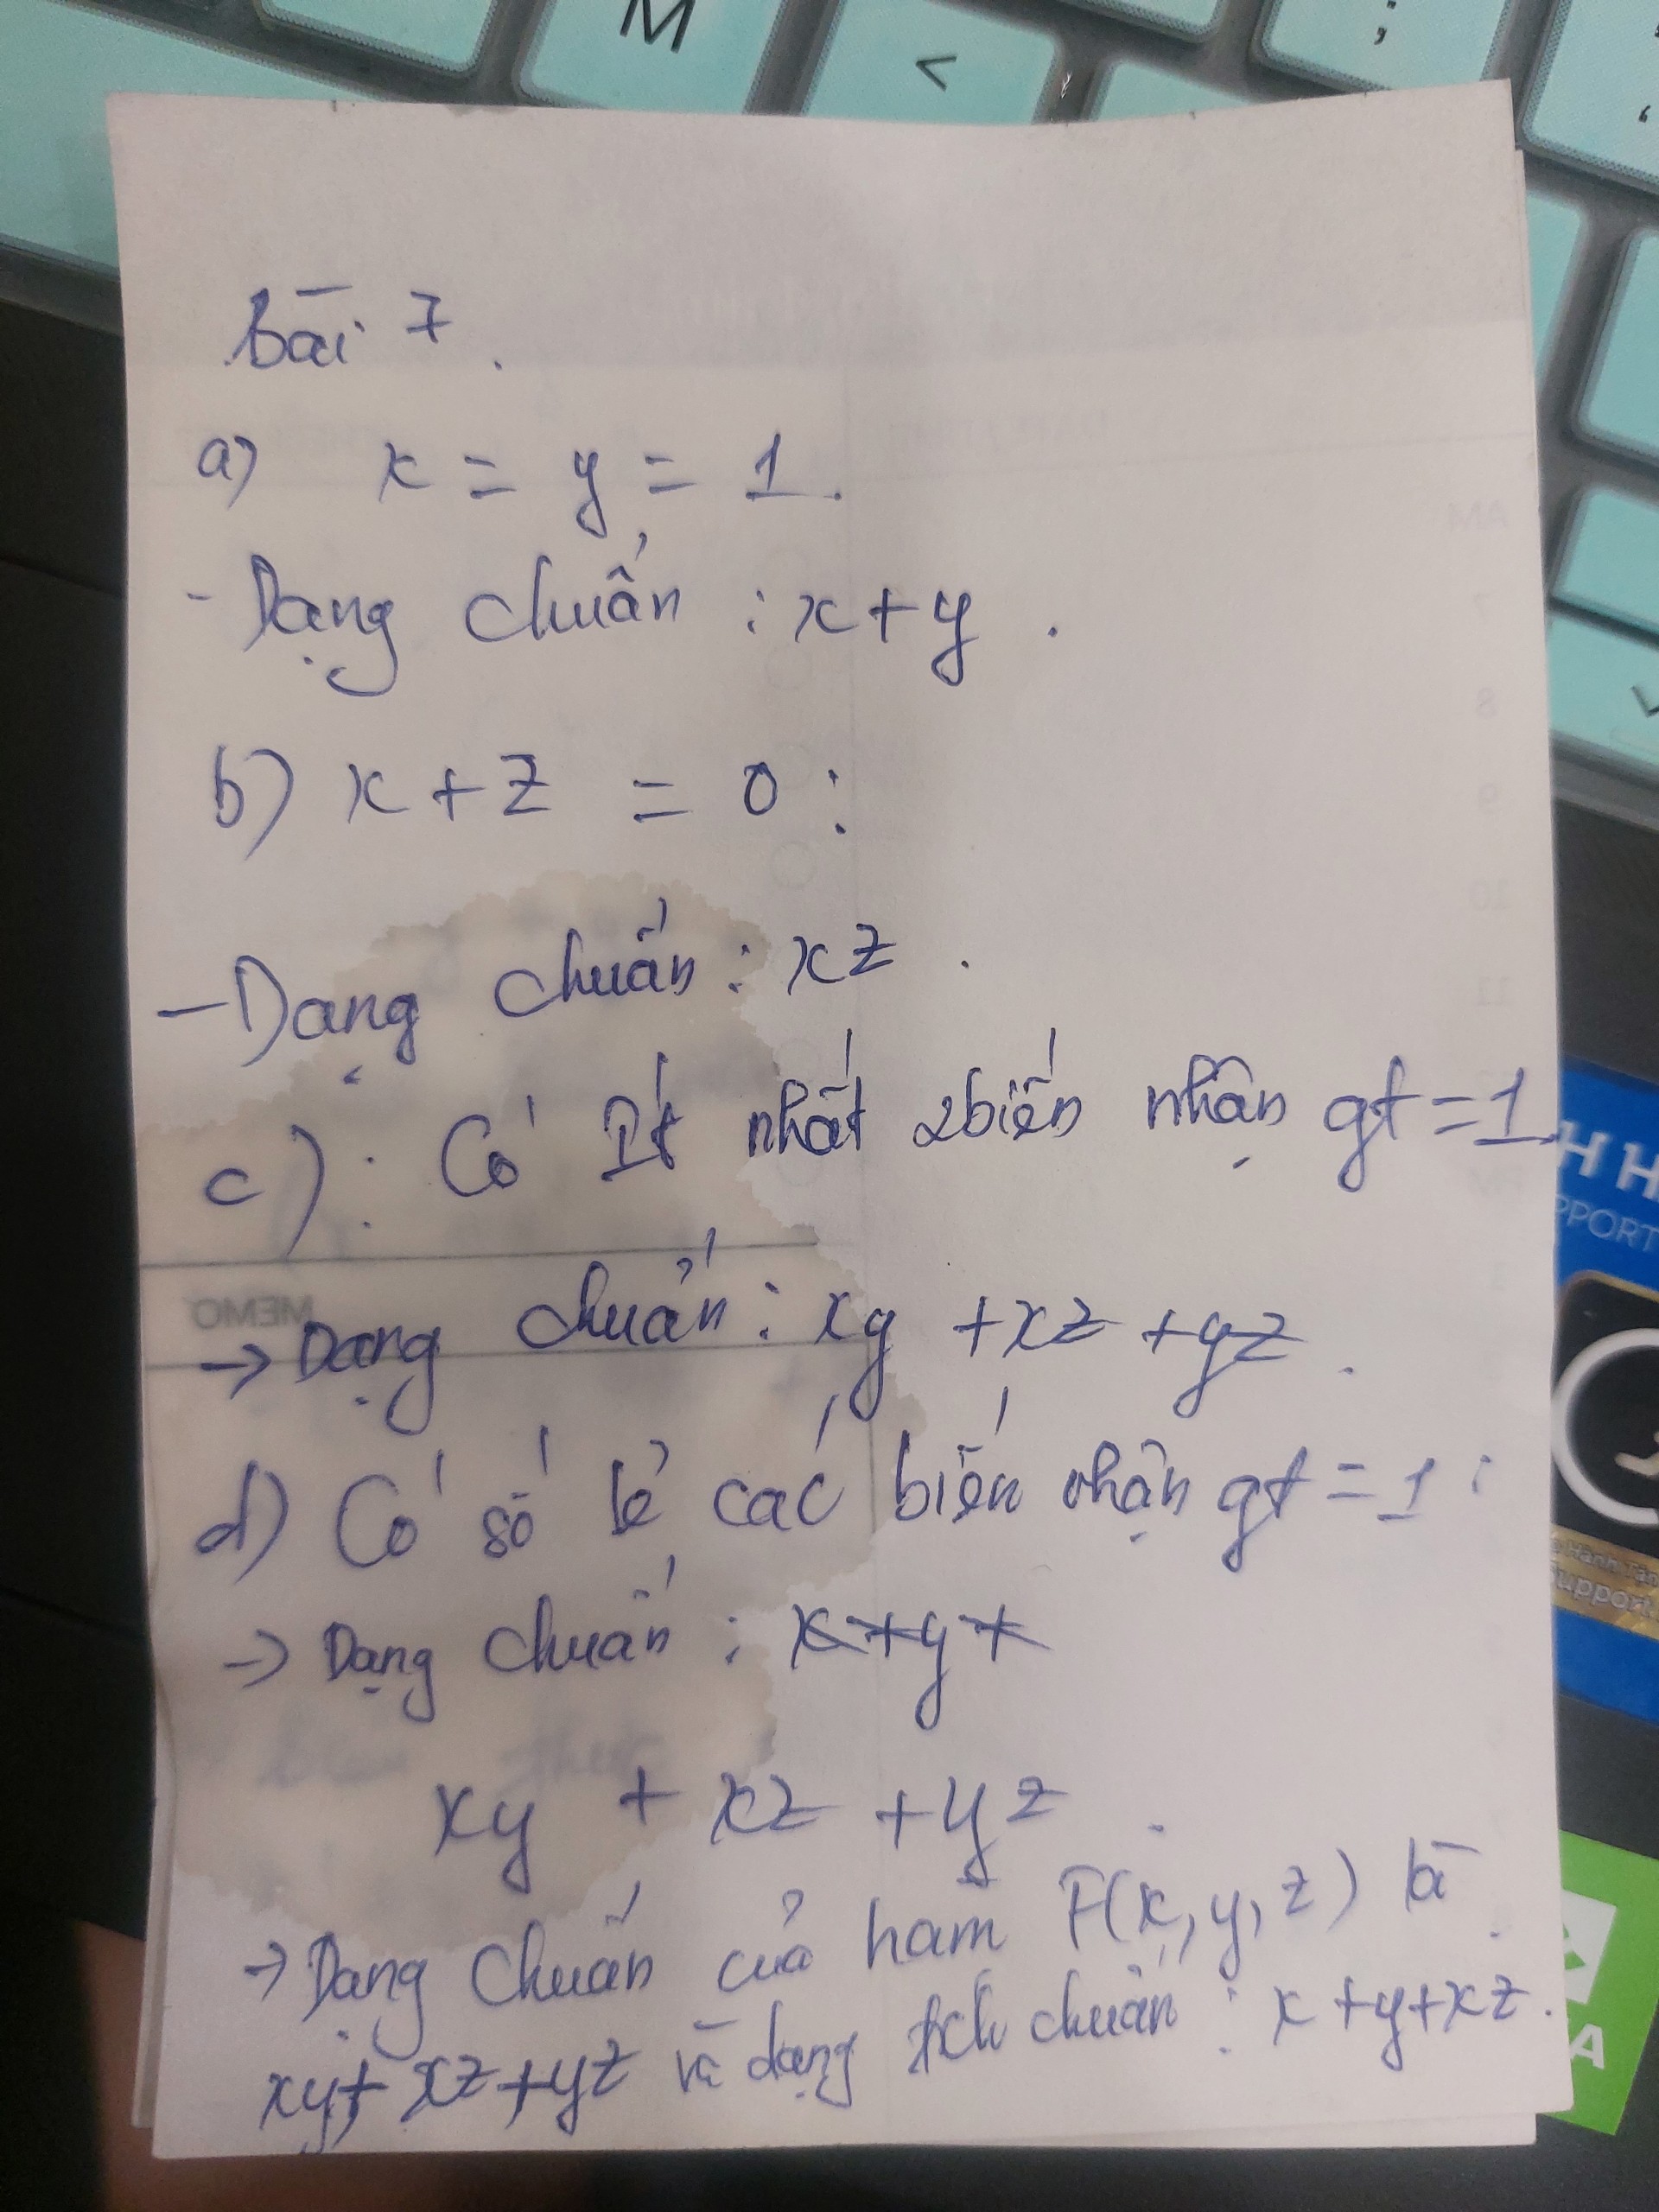 M
<
;
bài 7.
a) x = y = 1.
- Dạng chuẩn : x+y.
b) x + z = 0 :
- Dạng chuẩn : xz.
c) : Có ít nhất 2 biến nhận gt = 1
MEMO
-> Dạng chuẩn : xy + xz + yz.
d) Có số lẻ các biến nhận gt = 1 :
-> Dạng chuẩn : x+y+
xy + xz + yz.
-> Dạng chuẩn của hàm F(x, y, z) là
xy + xz + yz và dạng tích chuẩn : x + y + xz.
H H
PPORT
Hành Tận
upport
A